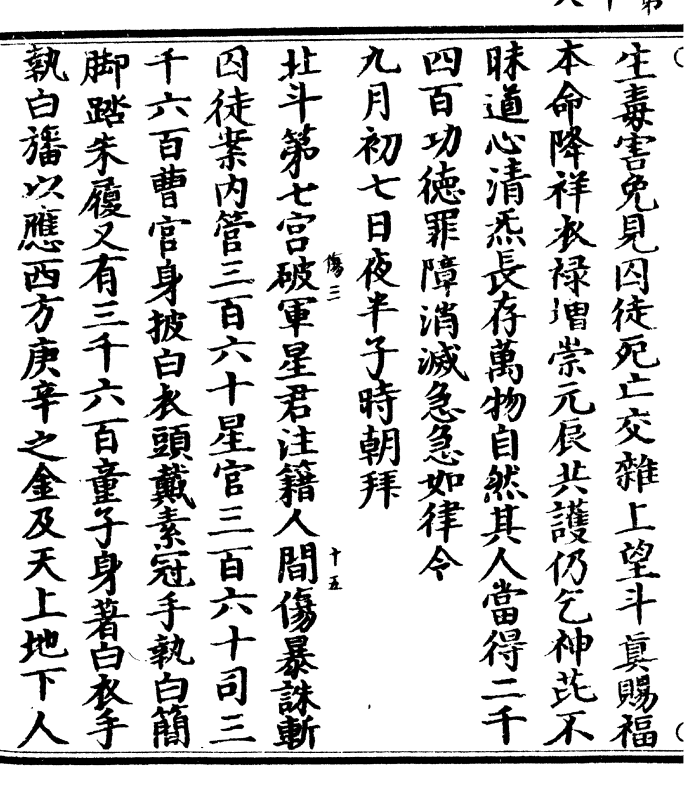 生毒害免見囚徒死亡交雜上望斗真賜福
本命降祥衣禄增崇元辰共護仍乞神芘不
昧道心清炁長存萬物自然其人當得二千
四百功德罪障消滅急急如律令
九月初七日夜半子時朝拜
北斗第七宮破軍星君注籍人間傷暴誅斬
傷三
十五
囚徒案內管三百六十星官三百六十司三
千六百曹官身披白衣頭戴素冠手執白簡
脚踏朱履又有三千六百童子身著白衣手
執白旛以應西方庚辛之金及天上地下人